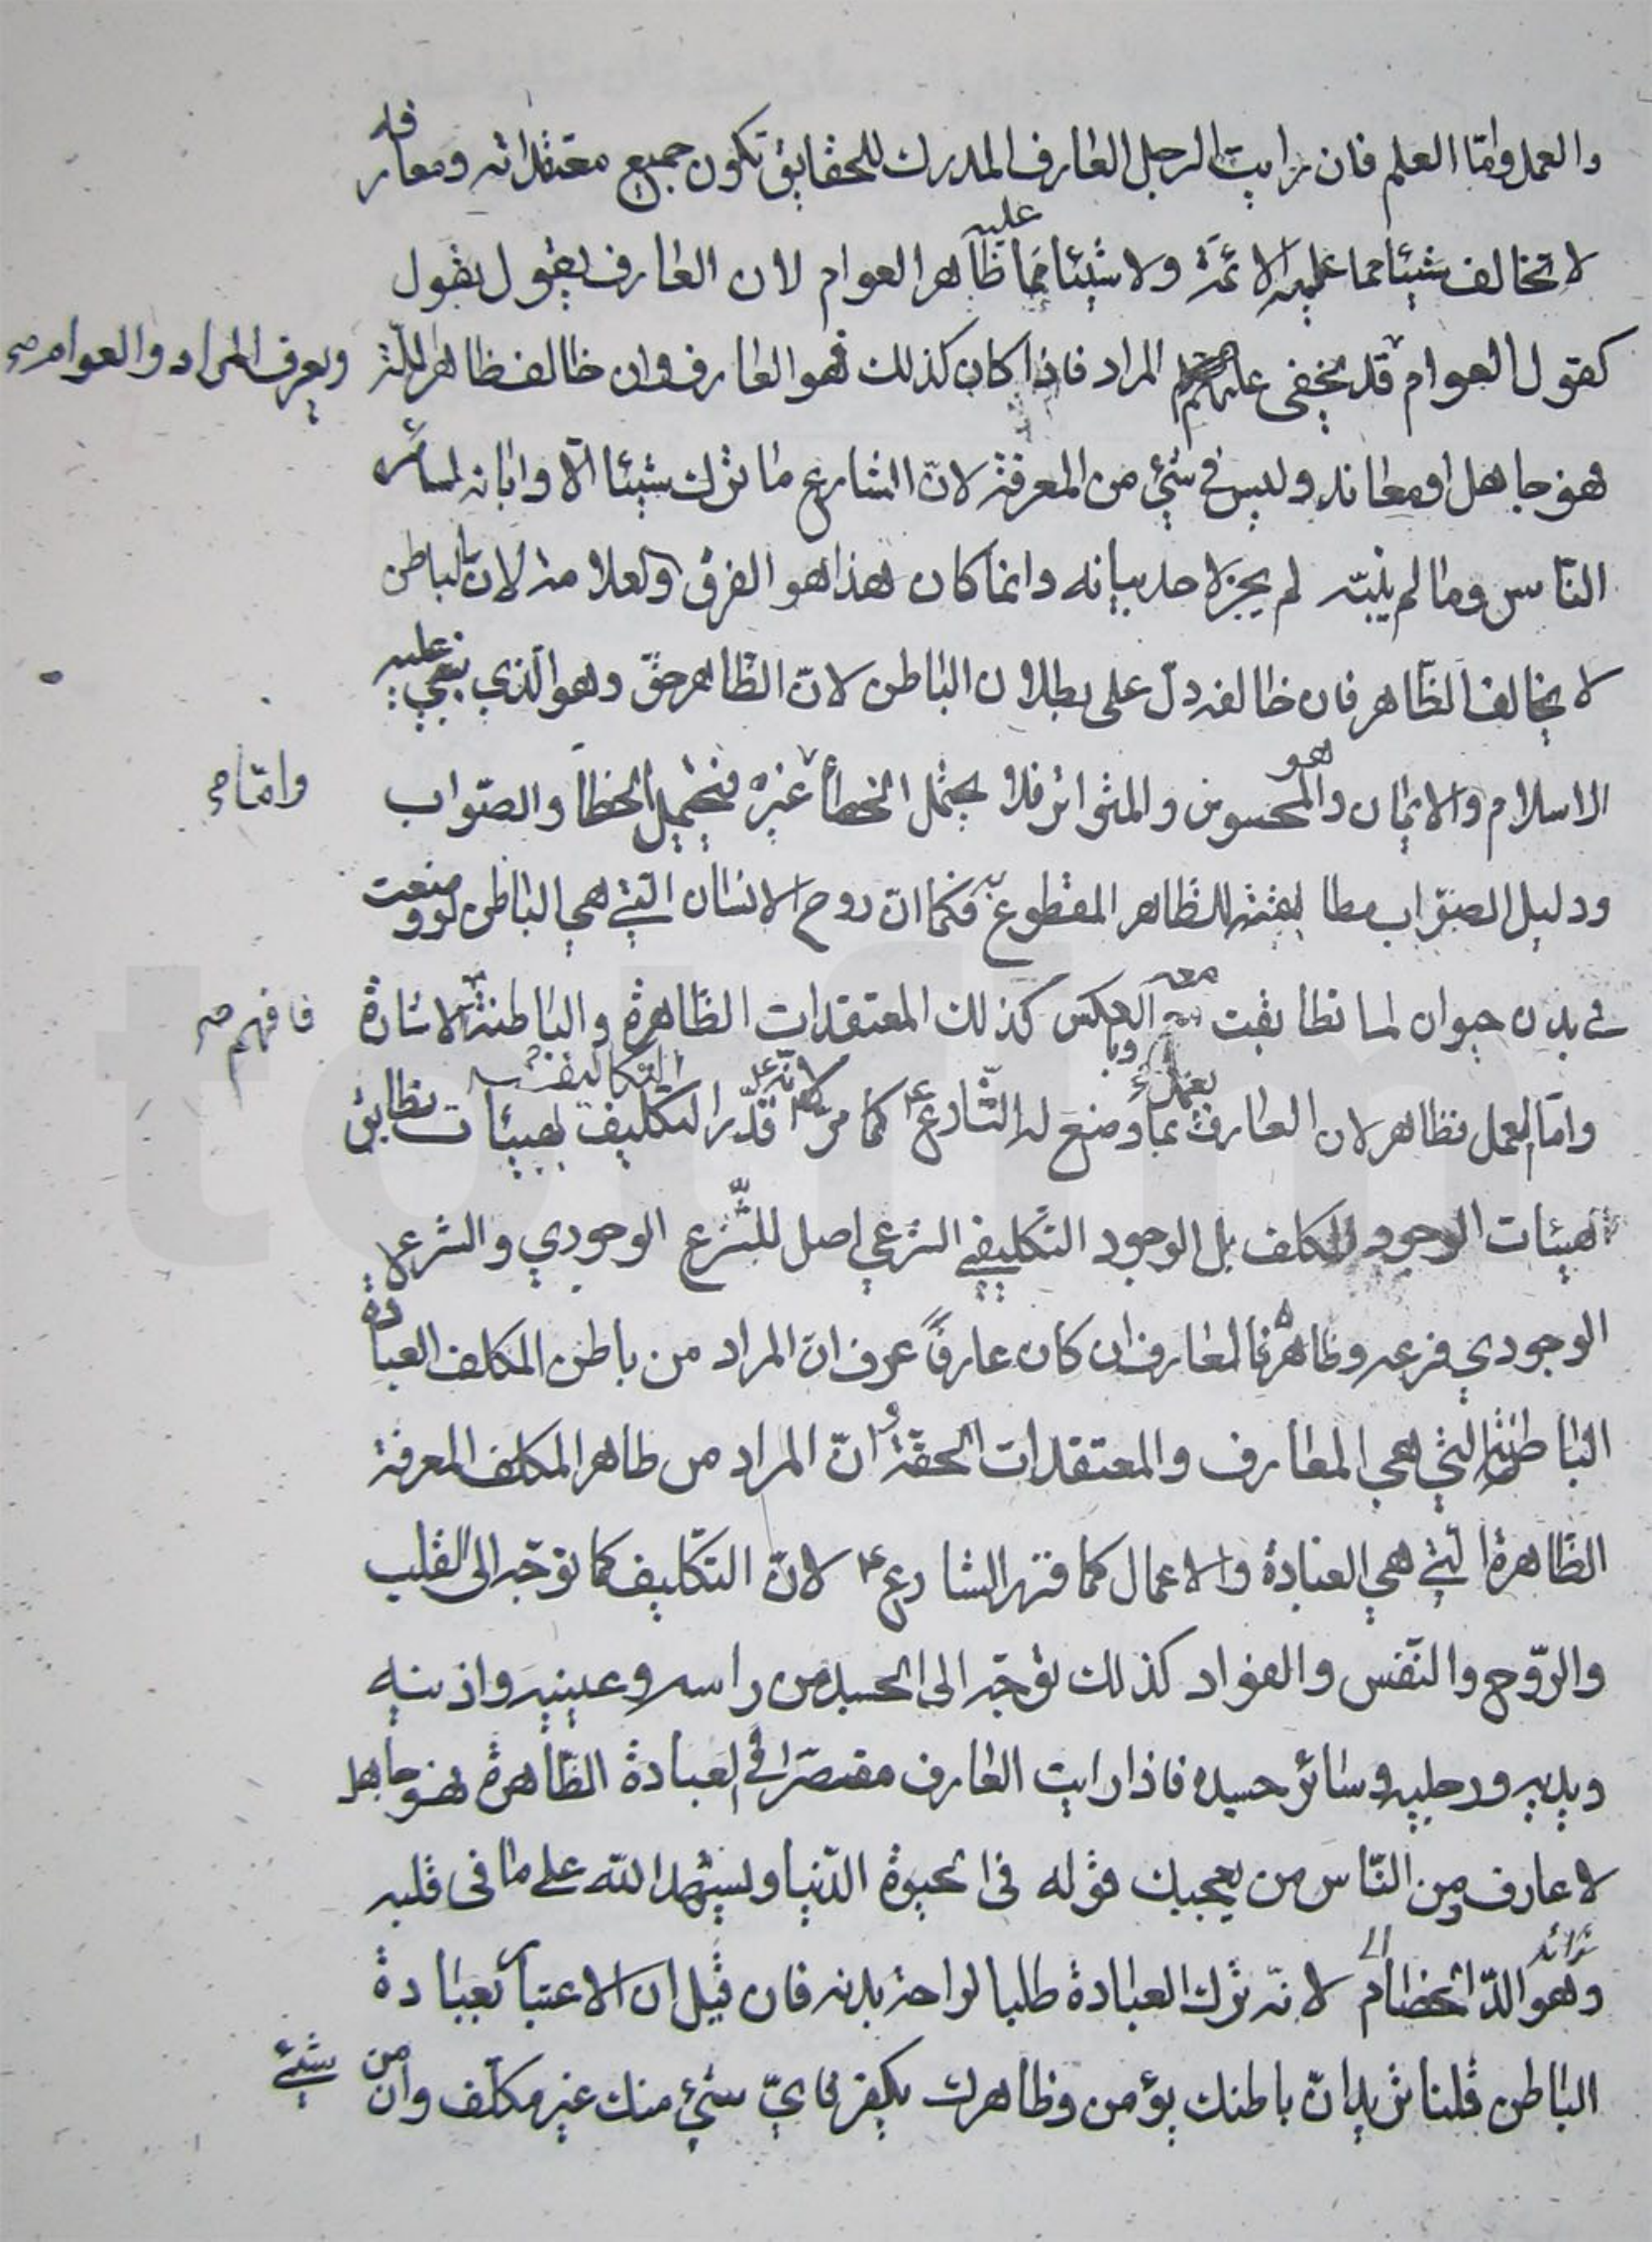 والعمل واما العلم فان رايت الرجل العارف المدرك للحقايق تكون جميع معتقداته ومعارفه
لا تخالف شيئا مما عليه الائمة ولا شيئا مما عليه ظاهر العوام لان العارف يقول بقول
كقول العوام قد يخفى عليهم المراد فاذا كان كذلك فهو العارف وان خالف ظاهر الملة ويعرف المراد والعوام صح
فهو جاهل او معاند وليس في شئ من المعرفة لان الشارع ما ترك شيئا الا وابانه لسائر
الناس وما لم يبنه لم يجز لاحد بيانه وانما كان هذا هو الفرق والعلامة لان الباطن
لا يخالف الظاهر فان خالفه دل على بطلان الباطن لان الظاهر حق وهو الذي بني عليه
الاسلام والايمان وهو المحسوس والمتواتر فلا يحتمل الخطأ غيره فيحتمل الخطأ والصواب وامّا صح
ودليل الصواب مطابقته للظاهر المقطوع به فكما ان روح الانسان التي هي الباطن لو وضعت
في بدن حيوان لما تطابقت معه وبالعكس كذلك المعتقدات الظاهرة والباطنة الاشارة فافهم صح
وامّا العمل فظاهر لان العارف يعمل بما وضع له الشارع ع كما مر لانه ع قدّر التكاليف بهيئات تطابق
هيئات الوجود المكلف بل الوجود التكليفي الشرعي اصل للشرع الوجودي والشرع
الوجودي فرعه وظاهره فالعارف ان كان عارفاً عرف ان المراد من باطن المكلف العبادة
الباطنة التي هي المعارف والمعتقدات الحقة وان المراد من ظاهر المكلف المعرفة
الظاهرة التي هي العبادة والاعمال كما قررها الشارع ع لان التكليف كما توجّه الى القلب
والروح والنفس والفؤاد كذلك توجّه الى الجسد من راسه وعينيه واذنيه
ويديه ورجليه وسائر جسده فاذا رايت العارف مقتصرا في العبادة الظاهرة فهو جاهل
لا عارف ومن الناس من يعجبك قوله في الحيوة الدنيا ويشهد الله على ما في قلبه
وهو الدّ الخصام لانه ترك العبادة طلبا لراحة بدنه فان قيل ان الاعتبار بعبادة
الباطن قلنا تريد ان باطنك يؤمن وظاهرك يكفر فايّ شئ منك غير مكلّف وان من شئ